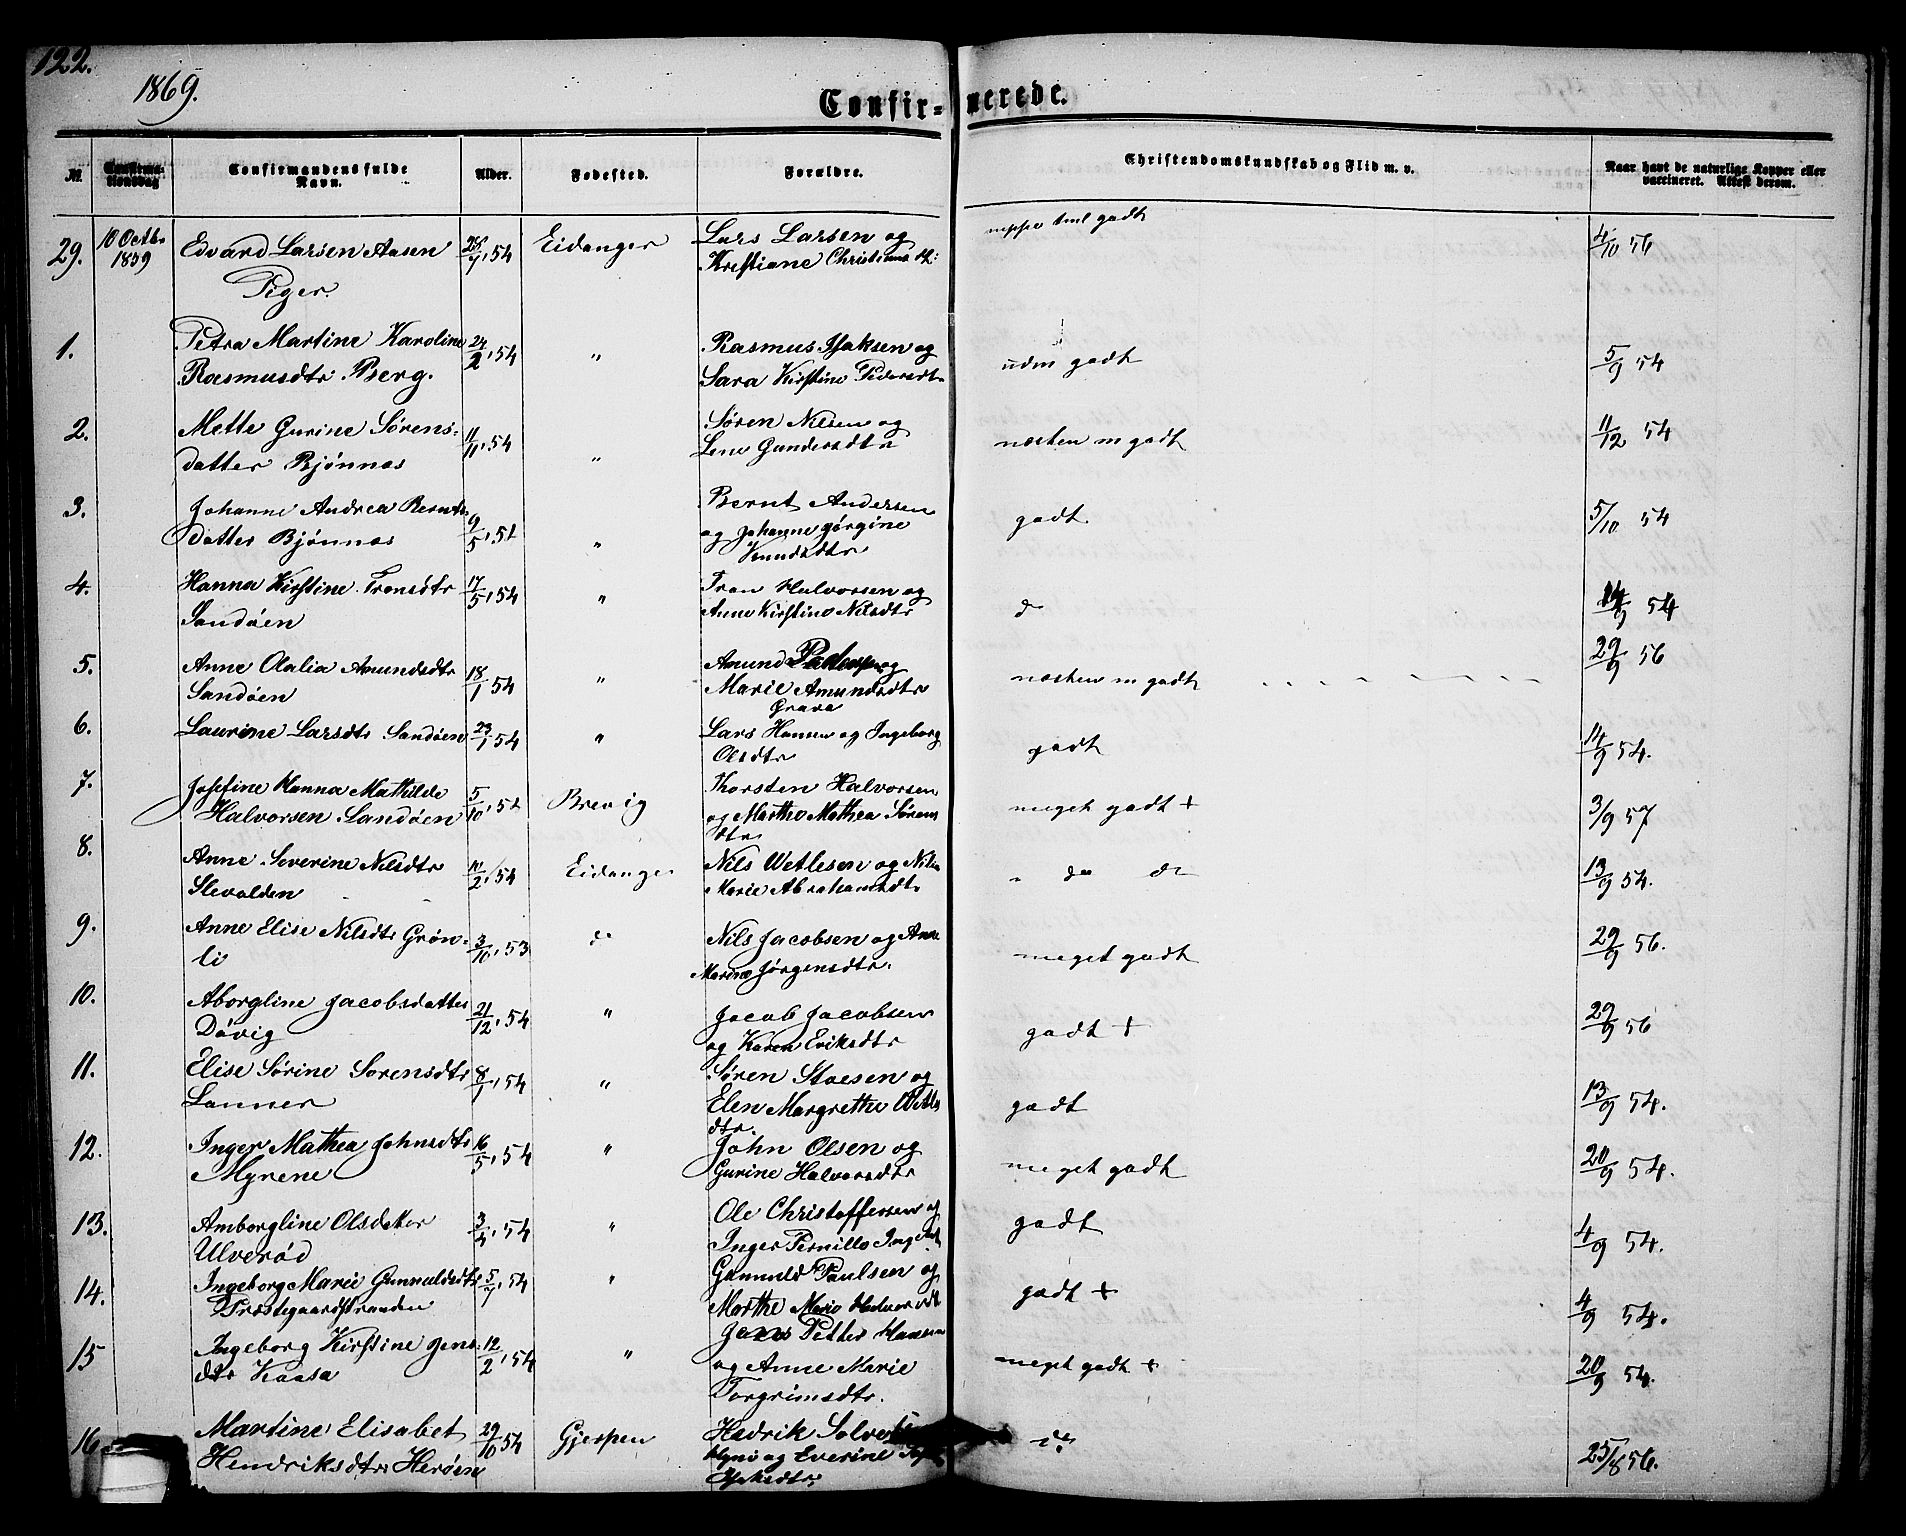 122.
1869.
Confir- merede.
№ Confirma-tionsdag Confirmandens fulde Navn. Alder. Fødested. Forældre. Christendomskundskab og Flid m. v. Naar havt de naturlige Kopper eller vaccineret. Attest derom.
29. 10 Octbr 1869 Edvard Larsen Aasen 54 Eidanger Lars Larsen og godt 4/10 56
Kristiane
Piger.
1. Petra Martine Karoline 24/2, 54 " Rasmus Isaksen og godt 5/9 54
Rasmusdtr Berg. Sara Kirstine Pedersdtr
2. Mette Gurine Sørens- 11/11, 54 " Søren Nilsen og næsten m godt 11/12 54
datter Bjønnæs Lene Gundersdtr
3. Johanne Andrea Berntz- 9/5, 54 " Bernt Andersen godt. 5/10 54
datter Bjønnæs og Johanne Jørgine
Knudsdtr
4. Hanna Kirstine Tronsdtr 17/5, 54 " Tron Halvorsen og do 54
Sandøen Anne Kirstine Nilsdtr
5. Anne Olalia Amundsdtr 18/1 54 " Amund Pedersen og næsten m godt 29/9 56
Sandøen Marie Amundsdtr
Grava
6. Laurine Larsdtr Sandøen 23/1 54 " Lars Hansen og Ingeborg godt 14/9 54.
Olsdtr
7. Josefine Hanna Mathilde 5/10, 54 Brevig Thorsten Halvorsen meget godt + 3/9 57
Halvorsen Sandøen og Marthe Mathea Sørens
dtr
8. Anne Severine Nilsdtr 54 Eidanger Nils Wetlesen og " do do 13/9 54.
Slevolden Marie Abrahamsdtr
9. Anne Elise Nilsdtr Grøn- 3/10, 53 do Nils Jacobsen og Anne meget godt 29/9 56.
li Marine Jørgensdtr.
10. Aborgline Jacobsdatter 21/12, 54 " Jacob Jacobsen godt + 29/9 56
Døvig og Karen Eriksdtr
11. Elise Sørine Sørensdtr 8/1, 54 " Søren Staesen og godt 13/9 54.
Lanner Elen Margrethe Wetles
dtr.
12. Inger Mathea Johnsdtr 16/5, 54 " John Olsen og meget godt 20/9 54.
Myrene Gurine Halvorsdtr
13. Amborgline Olsdatter 54 " Ole Christoffersen og godt 4/9 54.
Ulverød Inger Pernille
14. Ingeborg Marie Gunnuldsdtr 5/7, 54 " Gunnuld Paulsen og godt + 4/9 54.
Præstegaardstranden Marthe Marie Halvorsdt
15 Ingeborg Kirstine Jens- 12/2, 54 " Jens Petter Hansen meget godt + 20/9 54.
dtr Kaasa og Anne Marie
Torgrimsdtr.
16 Martine Elisabet 29/10 54 Gjerpen Hedrik do 25/8 56.
Hendriksdtr Herøen og Everine
Isaksdtr